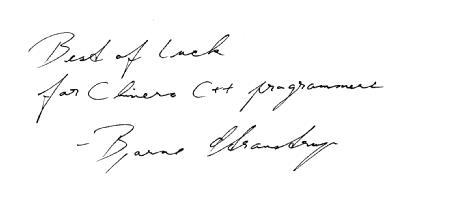 Best of luck
for Chinese C++ programmers
- Bjarne Stroustrup